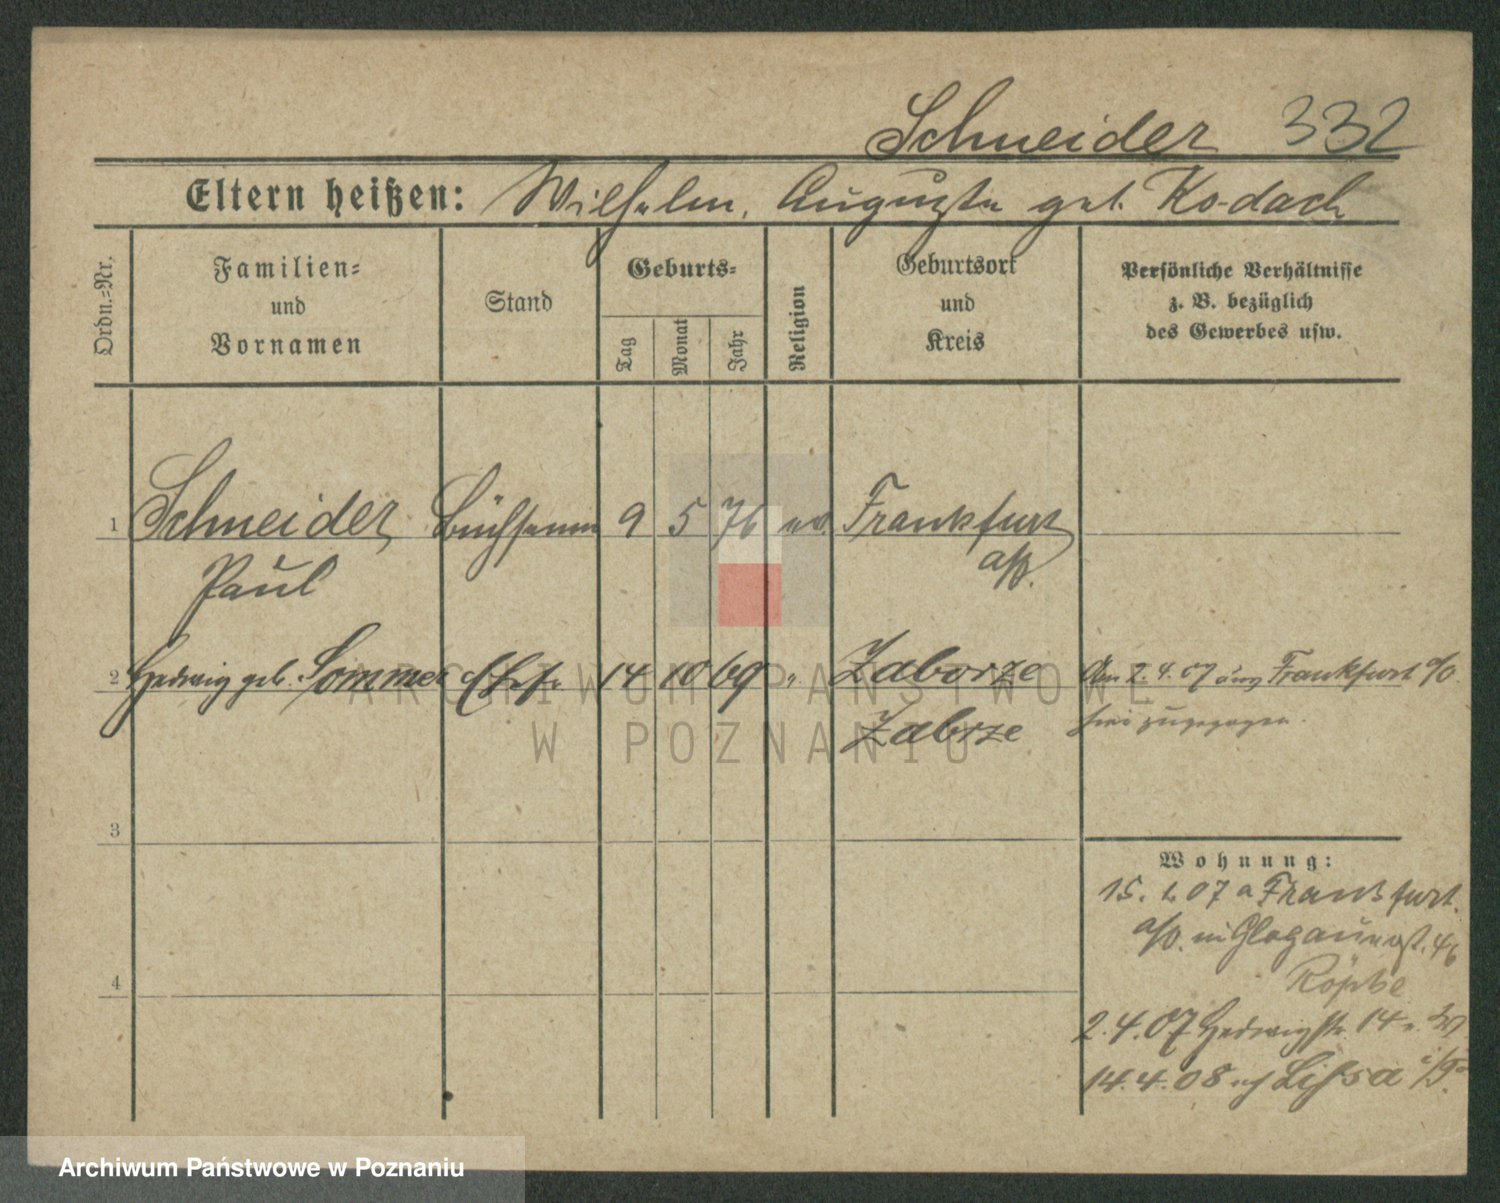 Schneider 332
Eltern heißen: Wilhelm, Auguste geb. Kodach
Ordn.=Nr.
Familien=
und
Vornamen
Stand
Geburts=
Tag
Monat
Jahr
Religion
Geburtsort
und
Kreis
Persönliche Verhältnisse
z. B. bezüglich
des Gewerbes usw.
1 Schneider, Büchsenm 9 5 76 ev. Frankfurt
Paul a/O.
2 Hedwig geb. Sommer Ehefr. 14 10 69 " Zaborze Am 2.4.07 aus Frankfurt a/O.
Zabrze hier zugezogen.
3
Wohnung:
15. 07 a Frankfurt.
a/O. Glogauerst. 46
4
Röpke
2.4.07 Hedwigstr. 14
14.4.08 Lissa i/P.
ARCHIWUM PAŃSTWOWE
W POZNANIU
Archiwum Państwowe w Poznaniu